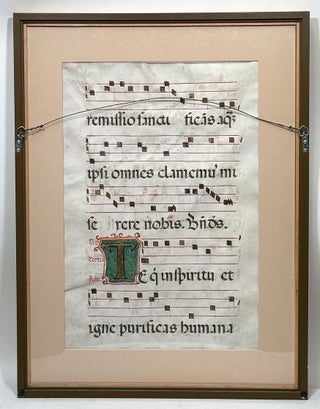 remissio sancti ficas aq̃s
ipsi omnes clamemꝰ mi
se rere nobis. Bñds.
TE q̃ in spiritu et
igne purificas humana